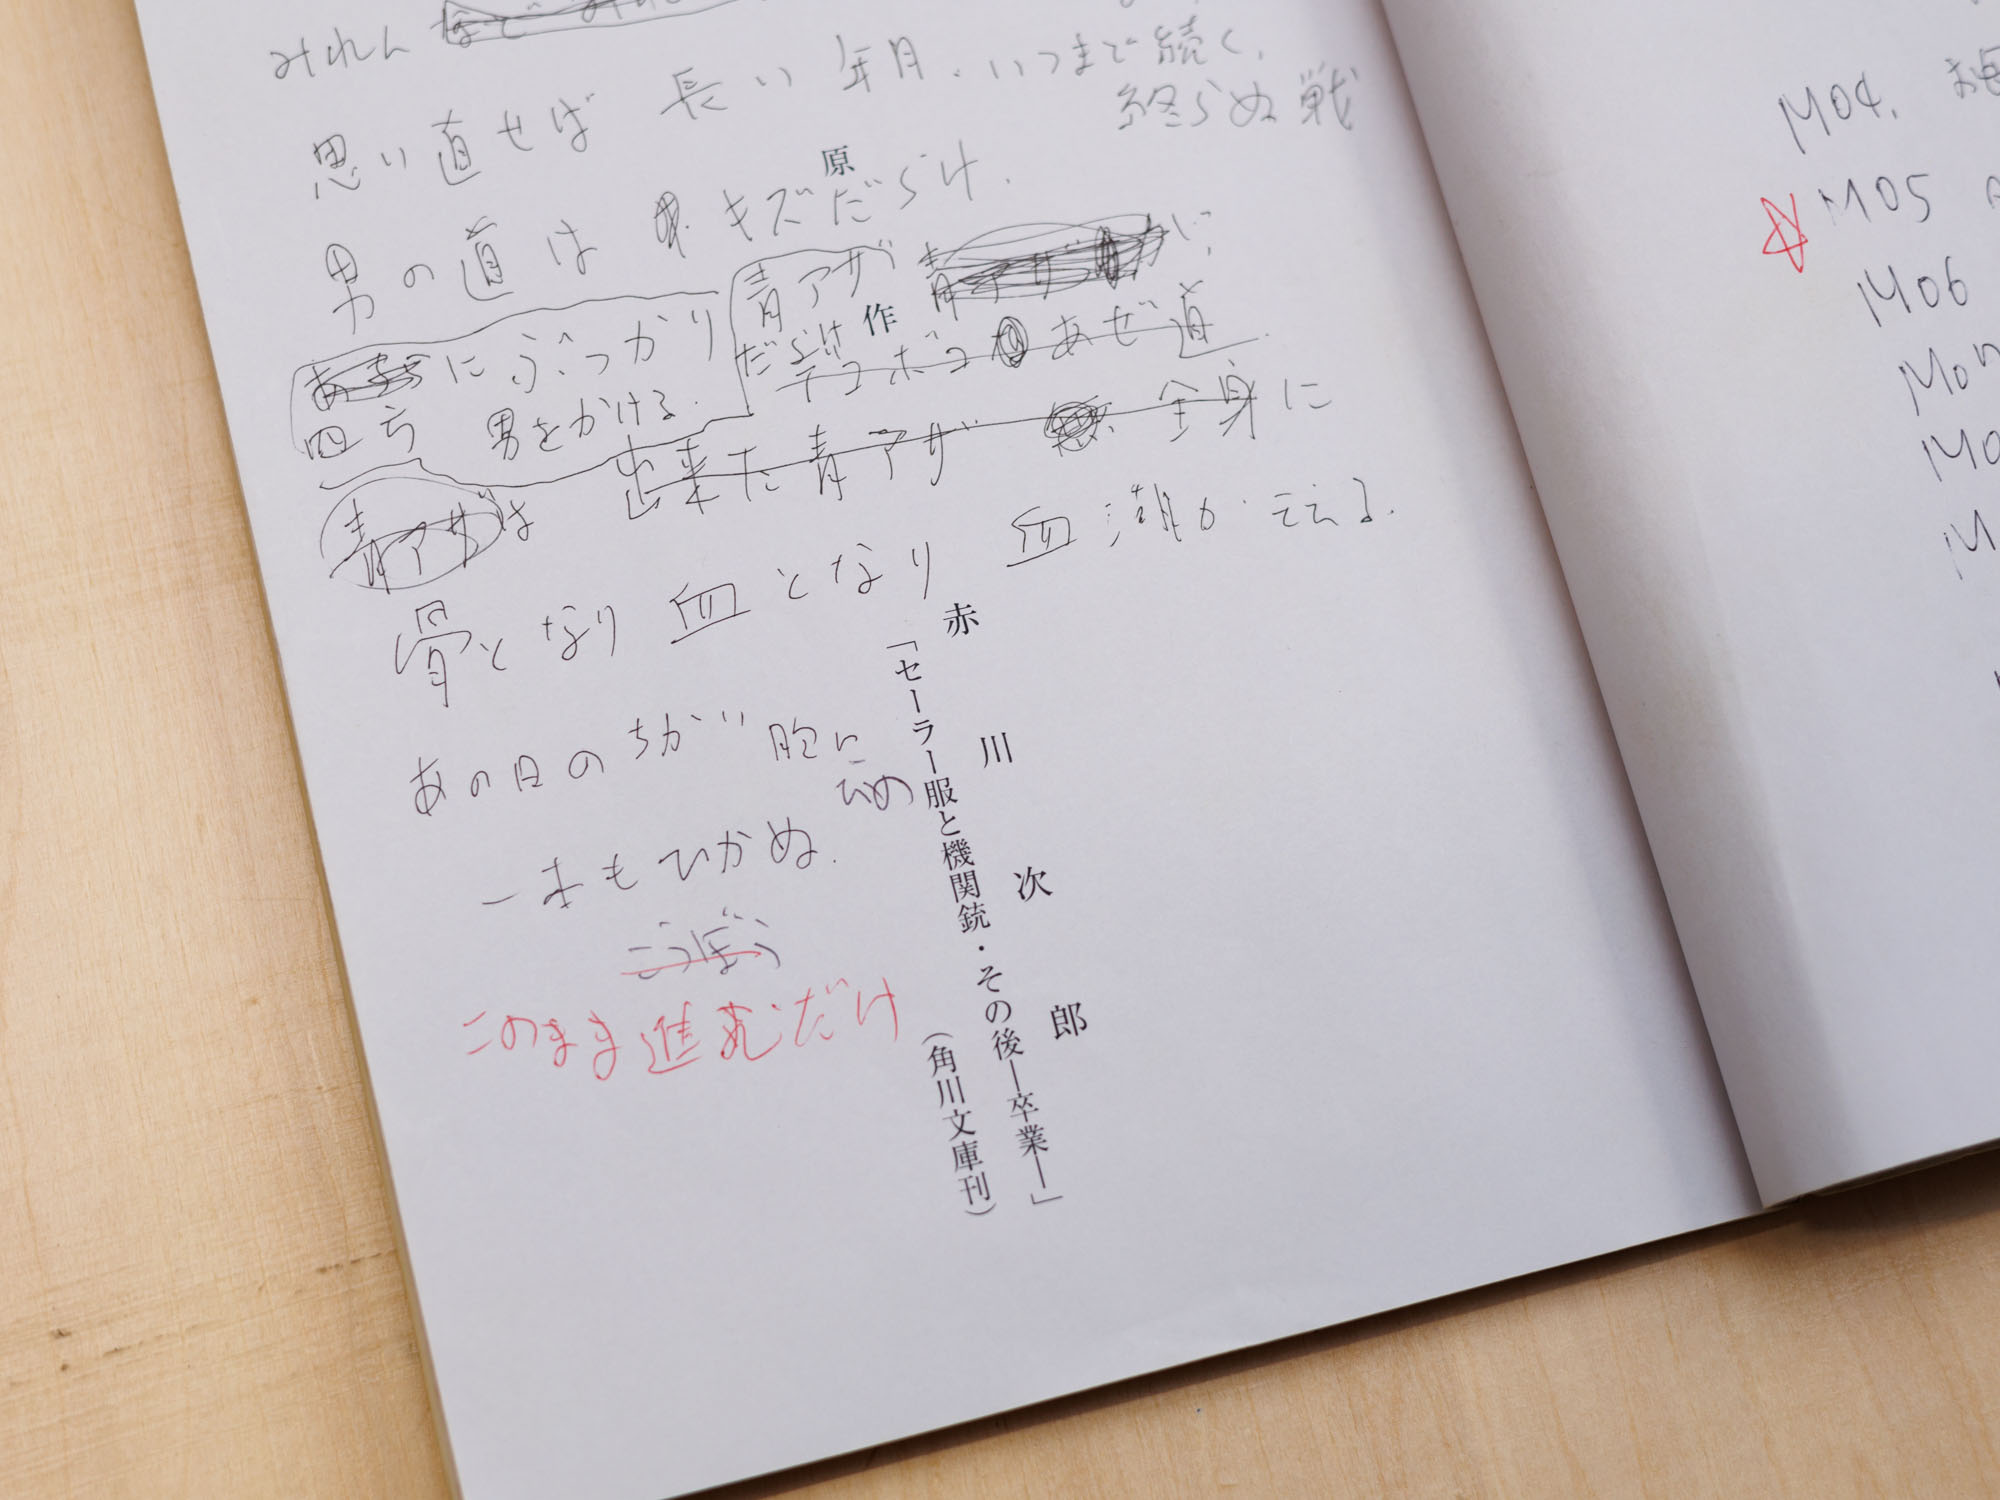 みれん
思い直せば 長い年月、いつまで続く、
終らぬ戦
男の道は キズだらけ.
青アザ
だらけ
デコボコ あぜ道
にぶつかり
四方 男をかける.
青アザは 出来た青アザ 全身に
骨となり 血となり 血潮がええる.
あの日のちかい 胸に
ひめ
一歩もひかぬ.
こうぼう
このまま進むだけ
原作
赤川次郎
「セーラー服と機関銃・その後―卒業―」
(角川文庫刊)
M04.
M05
M06